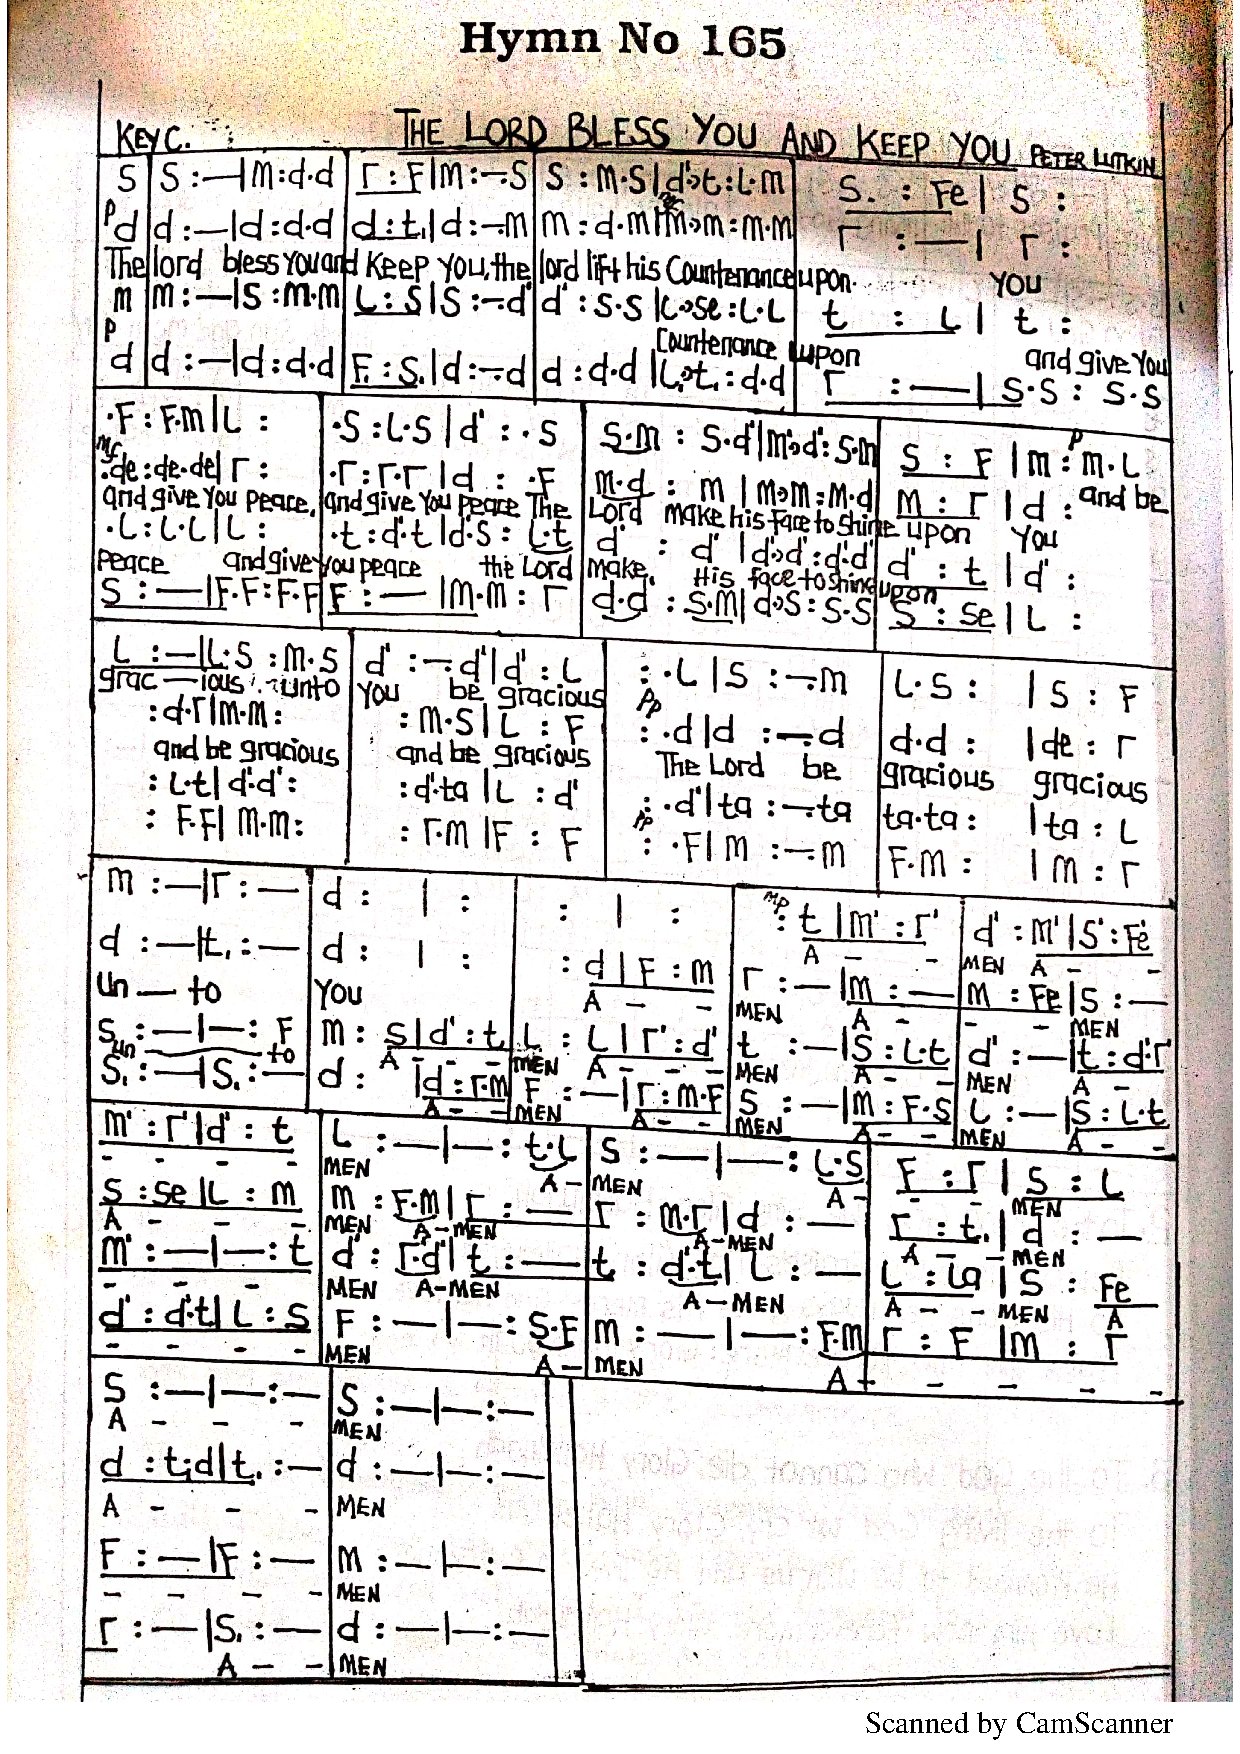 Hymn No 165
KEY C. THE LORD BLESS YOU AND KEEP YOU PETER LUTKIN
S | S :—|m:d·d | r : F|m:—·S | S : m·S|d'>t:L·m | S. : Fe | S :
p
d | d :—|d:d·d | d:t,|d:—·m | m:d·m|m>m:m·m | r :—| r :
The lord bless You and Keep You, the lord lift his Countenance upon You
m | m :—|S:m·m | L:S|S:—·d' | d':S·S|L>Se:L·L | t : L | t :
p
Countenance upon and give You
d | d:—|d:d·d | F,:S,|d:—·d | d:d·d|L,>t,:d·d | r :—| S·S : S·S
·F : F·m|L : | ·S : L·S | d' : ·S | S·m : S·d'|m'>d':S·m | S : F | m : m·L
mf p
·de:de·de|r : | ·r:r·r|d : ·F | m·d : m | m>m:m·d | m : r | d :
and give You peace, and give You peace The Lord make his face to shine upon You and be
·L:L·L|L : | ·t:d'·t|d'·S : L·t | d' : d' |d'>d':d'·d' | d' : t | d' :
peace and give You peace the Lord make. His face to shine upon
S :—|F·F:F·F | F :—|m·m : r | d·d : S·m|d>S:S·S | S : Se | L :
L :—|L·S : m·S | d' :—·d'|d' : L | : ·L | S :—·m | L·S : | S : F
grac—ious unto You be gracious
pp
:d·r|m·m: | :m·S|L : F | : ·d|d :—·d | d·d : |de : r
and be gracious and be gracious The Lord be gracious gracious
: L·t|d'·d': | :d'·ta |L : d' | : ·d'|ta :—·ta | ta·ta : |ta : L
pp
: F·F|m·m: | : r·m |F : F | : ·F|m :—·m | F·m : | m : r
m :—|r :— | d : | : | : | : | : t|m' : r' | d' : m'|S' : Fe'
mp
A - - MEN A - -
d :—|t, :— | d : | : | : d|F : m | r :—|m :— | m : Fe|S :—
Un — to YOU A - - MEN A - - - MEN
S, :—|—: F | m : S|d' : t | L : L|r' : d' | t :—|S : L·t | d' :—|t : d'·r'
un to A - - - MEN A - - MEN A - - MEN A -
S, :—|S, :— | d : |d : r·m | F :—|r : m·F | S :—|m : F·S | L :—|S : L·t
A - - MEN A - - MEN A - - MEN A - -
m' : r'|d' : t | L :—|—: t·L | S :—|—: L·S | F : r | S : L
- - - - MEN A - MEN A - MEN
S : Se|L : m | m : F·m|r :— | r : m·r|d :— | r : t,|d :—
A - - - MEN A - MEN A - MEN A - - MEN
m' :—|—: t | d' : r'·d'|t :— | t : d'·t|L :— | L : La | S : Fe
- - - - MEN A-MEN A-MEN A - - MEN A
d' : d'·t|L : S | F :—|—: S·F | m :—|—: F·m | r : F |m : r
- - - - MEN A - MEN A - - - -
S :—|—:— | S :—|—:—
A - - - MEN
d : t,·d|t, :— | d :—|—:—
A - - - MEN
F :—|F :— | m :—|—:—
- - - - MEN
r :—|S, :— | d :—|—:—
A - - MEN
Scanned by CamScanner